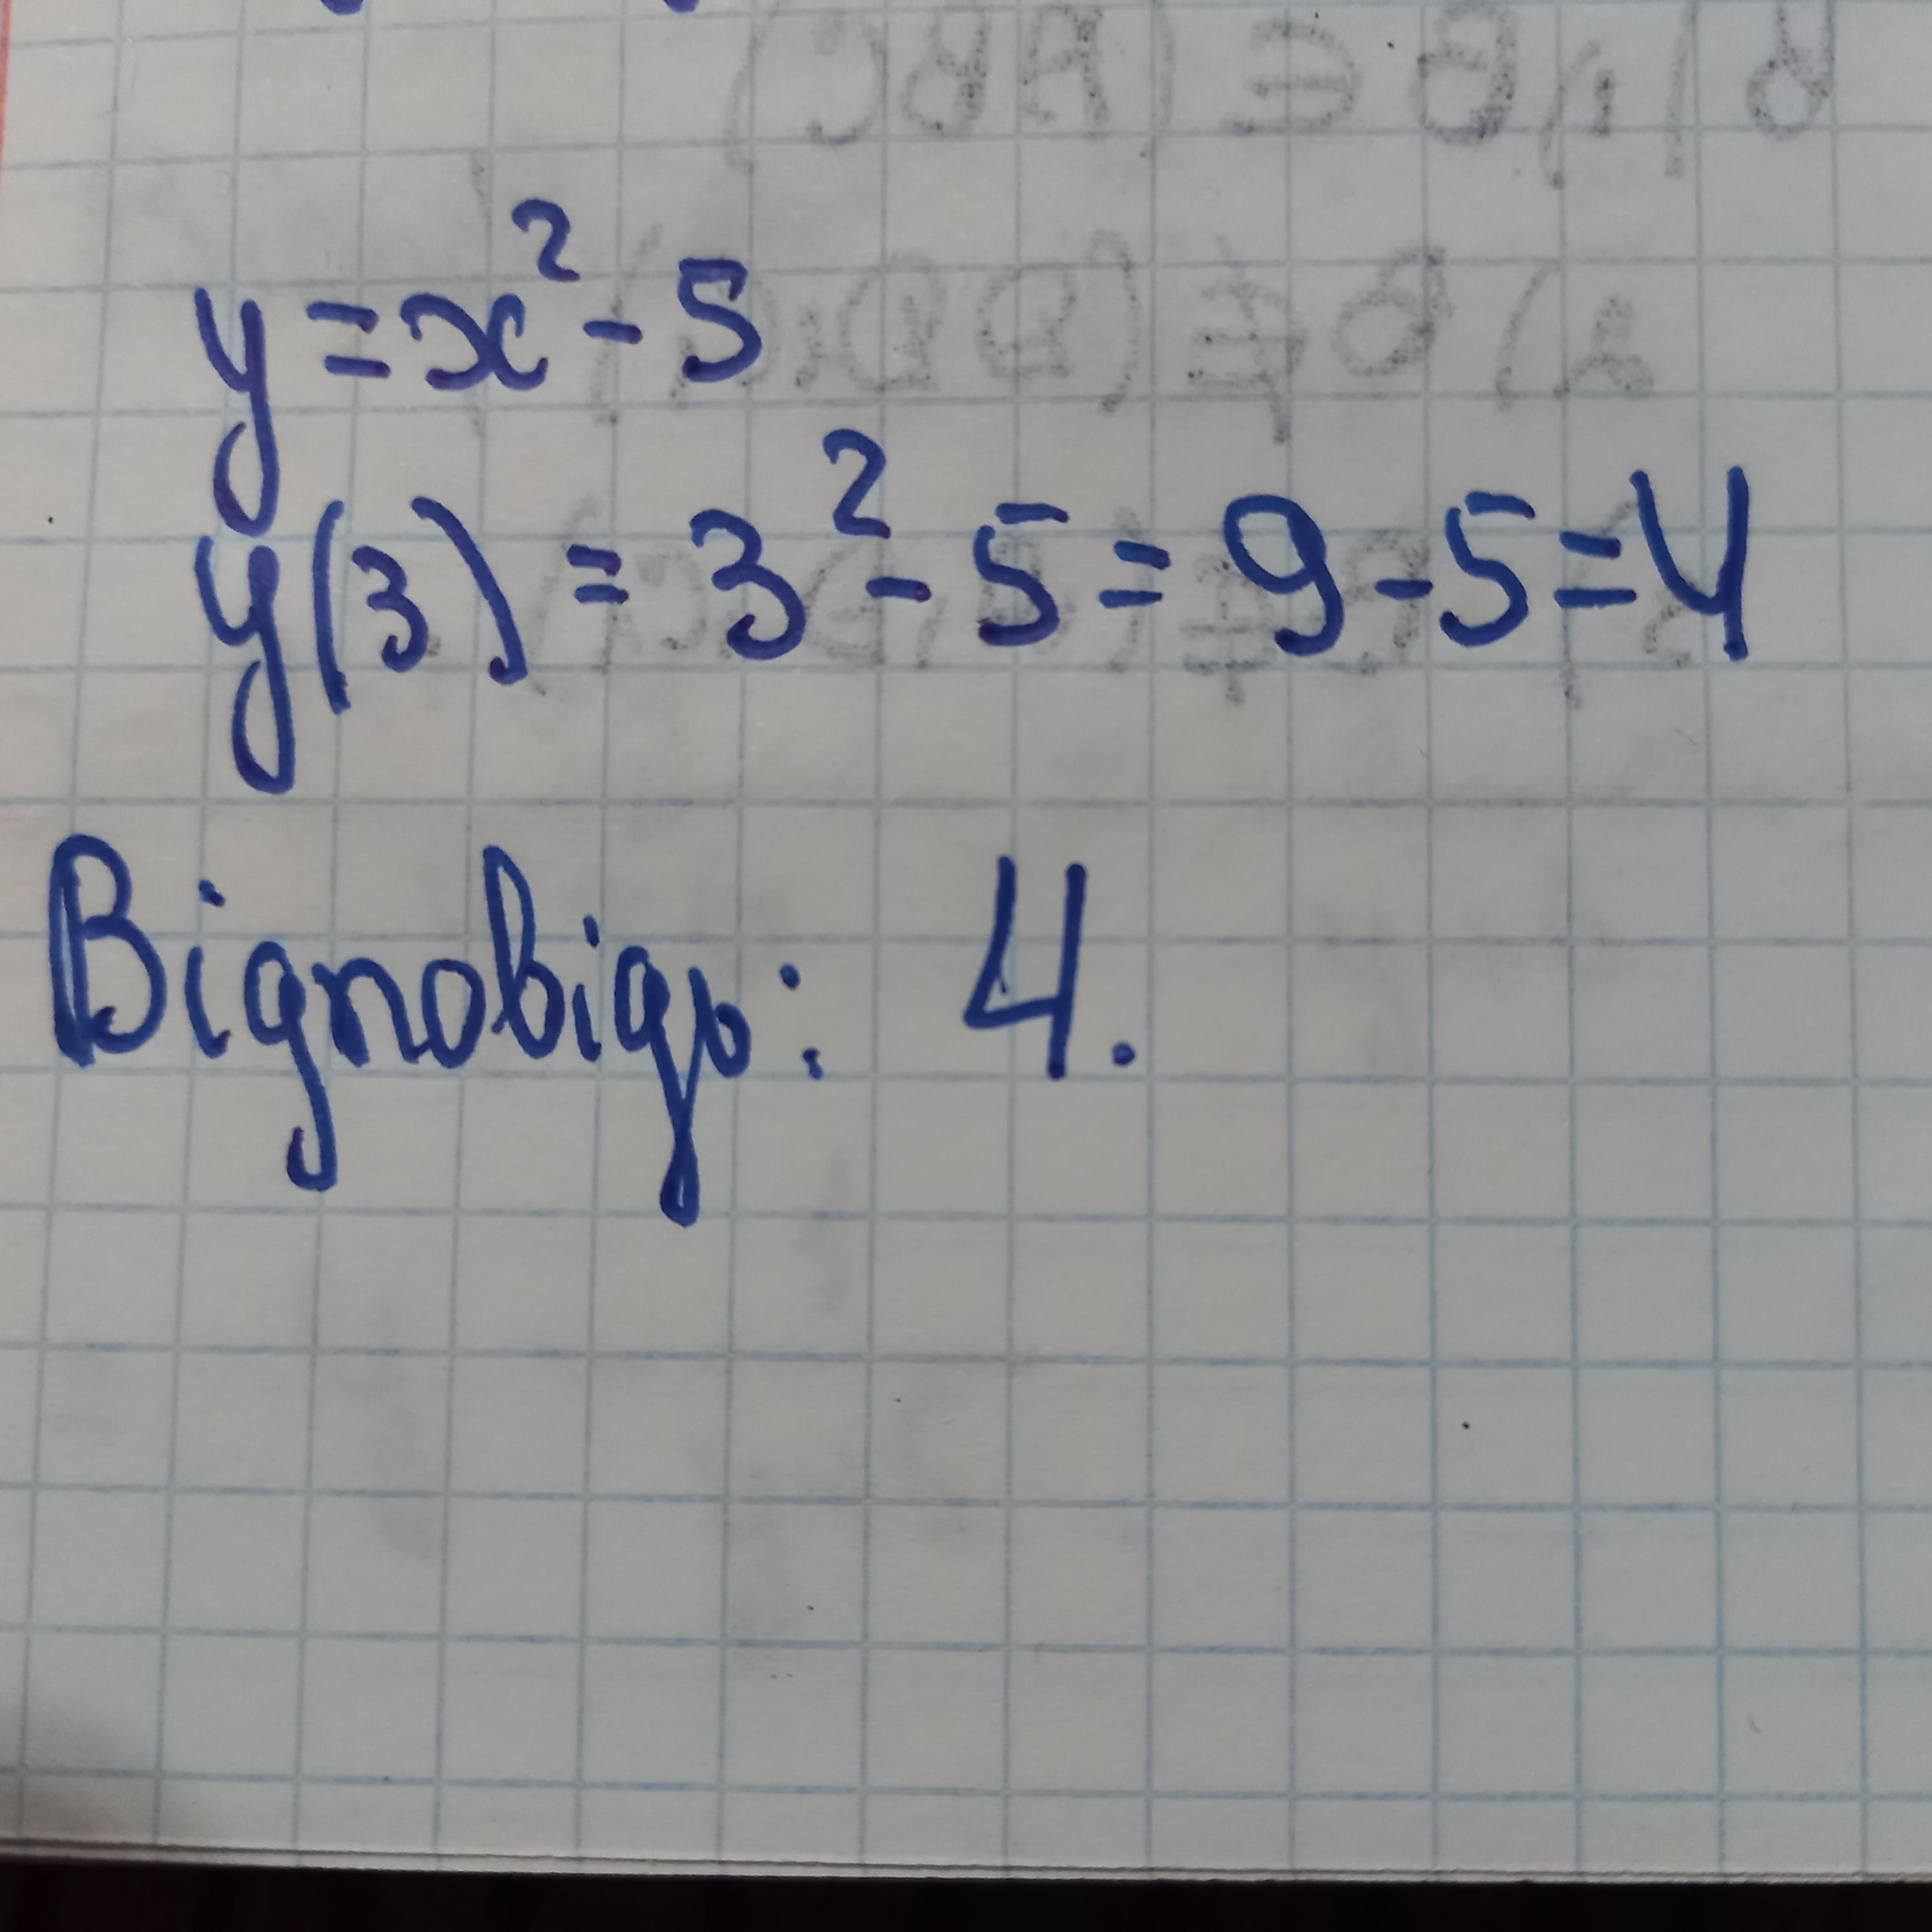 y = x² - 5
y(3) = 3² - 5 = 9 - 5 = 4
Відповідь: 4.